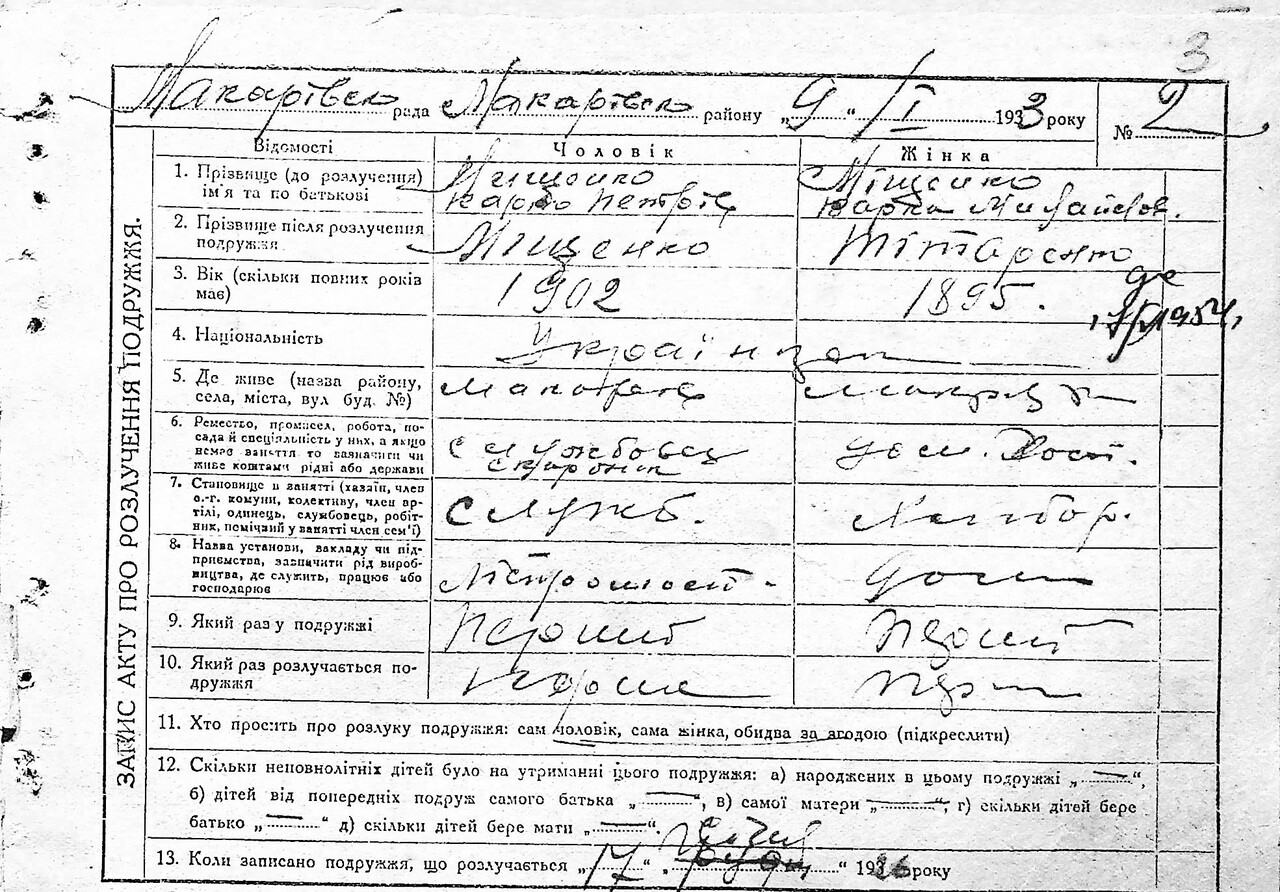 3
Макарівсь рада Макарівсь району „9“ /I 1933 року № 2
ЗАПИС АКТУ ПРО РОЗЛУЧЕННЯ ПОДРУЖЖЯ.
Відомості Чоловік Жінка
1. Прізвище (до розлучення) Мищенко Міщенко
ім'я та по батькові Карпо Петрів
2. Прізвище після розлучення Міщенко Тітаренко
подружжя
3. Вік (скільки повних років 1902 1895.
має)
4. Національність Українцеп
5. Де живе (назва району,
села, міста, вул буд. №)
6. Ремество, промисел, робота, по- Службовец дом. Хост.
сада й спеціяльність у них, а якщо
немає заняття то зазначити чи
живе коштами рідні або держави
7. Становище в занятті (хазяїн, член Служб.
с.-г. комуни, колективу, член ар-
тілі, одинець, службовець, робіт-
ник, помічний у занятті член сем'ї)
8. Назва установи, закладу чи під-
приємства, зазначити рід вироб-
ництва, де служить, працює або
господарює
9. Який раз у подружжі Перший Перший
10. Який раз розлучається по-
дружжя
11. Хто просить про розлуку подружжя: сам чоловік, сама жінка, обидва за згодою (підкреслити)
12. Скільки неповнолітніх дітей було на утриманні цього подружжя: а) народжених в цьому подружжі „—“,
б) дітей від попередніх подруж самого батька „—“, в) самої матери „—“, г) скільки дітей бере
батько „—“ д) скільки дітей бере мати „—“.
січня
13. Коли записано подружжя, що розлучається „17“ „грудн“ 1926 року